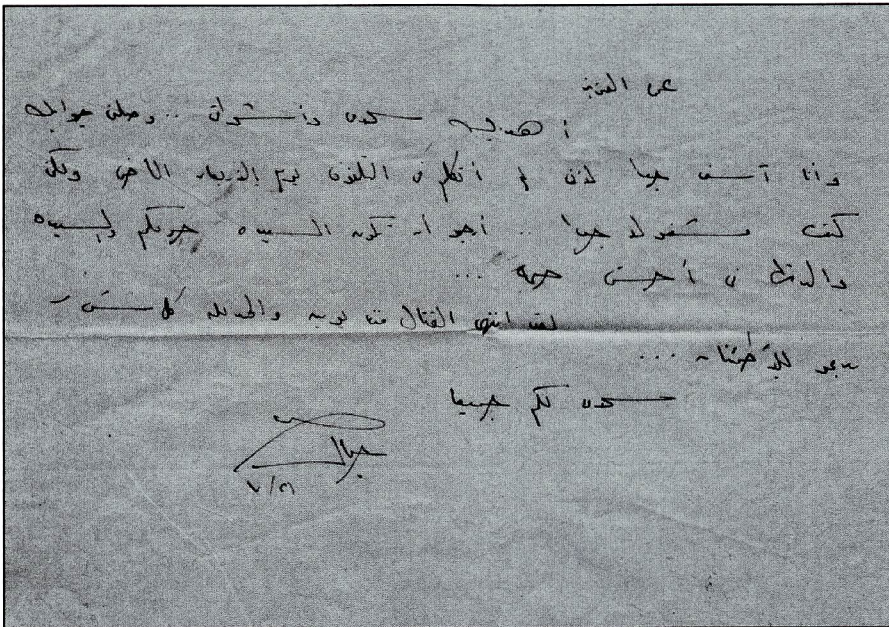 عمى العزيز
أهديك سلامى وأشواقى .. وصلنى جوابك
وأنا آسف جدا لأنى لم أتكلم فى التلفون يوم الأربعاء الماضى ولكن
كنت مشغولا جدا .. أرجو أن تكون السيده حرمكم والسيده
والدتها فى أحسن صحة ...
لقد انتهى القتال منذ يومين والحمد لله كل شئ
يدعو للاطمئنان ...
سلامى لكم جميعا
جمال